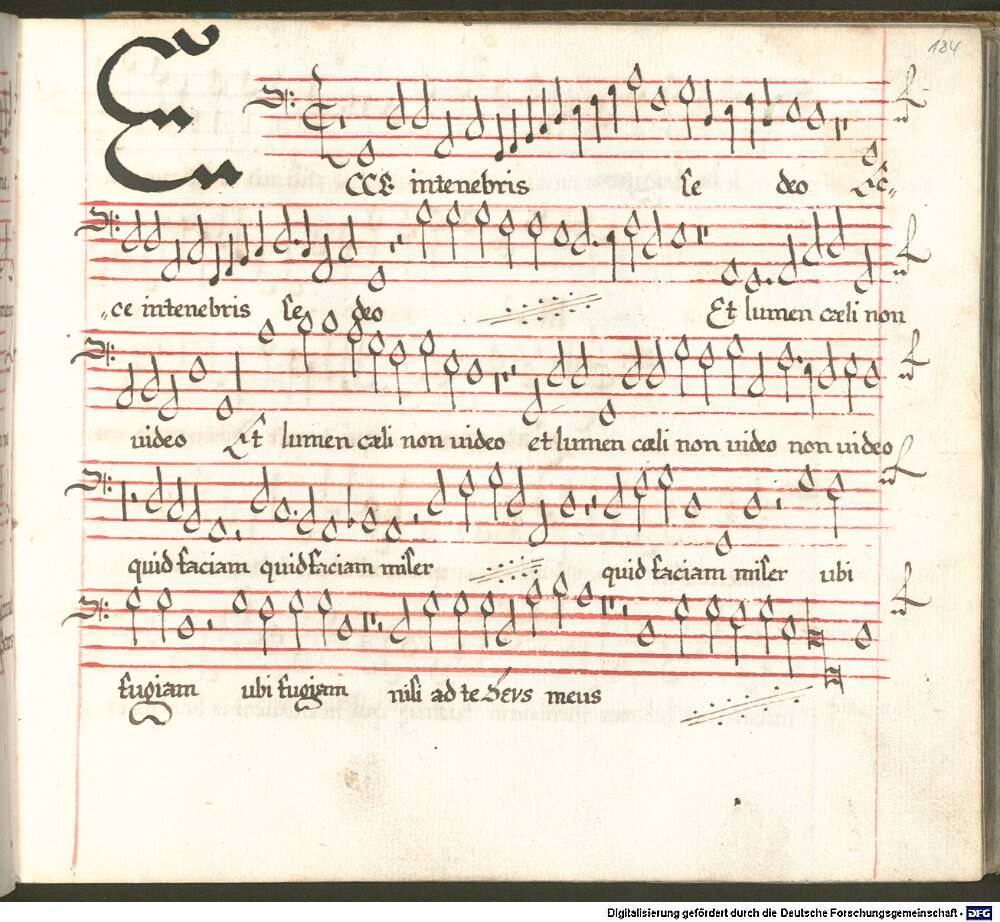 184
ECCE in tenebris se deo Ec-
ce in tenebris se deo Et lumen cæli non
video Et lumen cæli non video et lumen cæli non video non video
quid faciam quid faciam miser quid faciam miser ubi
fugiam ubi fugiam nisi ad te Deus meus
Digitalisierung gefördert durch die Deutsche Forschungsgemeinschaft - DFG